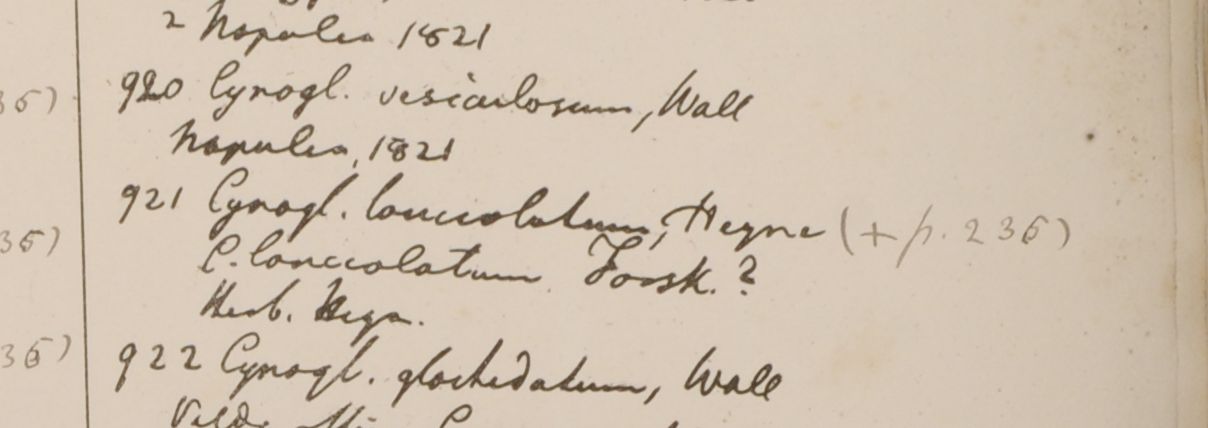 2 Napalia 1821
920 Cynogl. vesiculosum, Wall
36)
Napalia, 1821
921 Cynogl. lanceolatum, Heyne (+ p. 236)
36)
C. lanceolatum Forsk. ?
Herb. Heyn.
36)
922 Cynogl. glochidatum, Wall